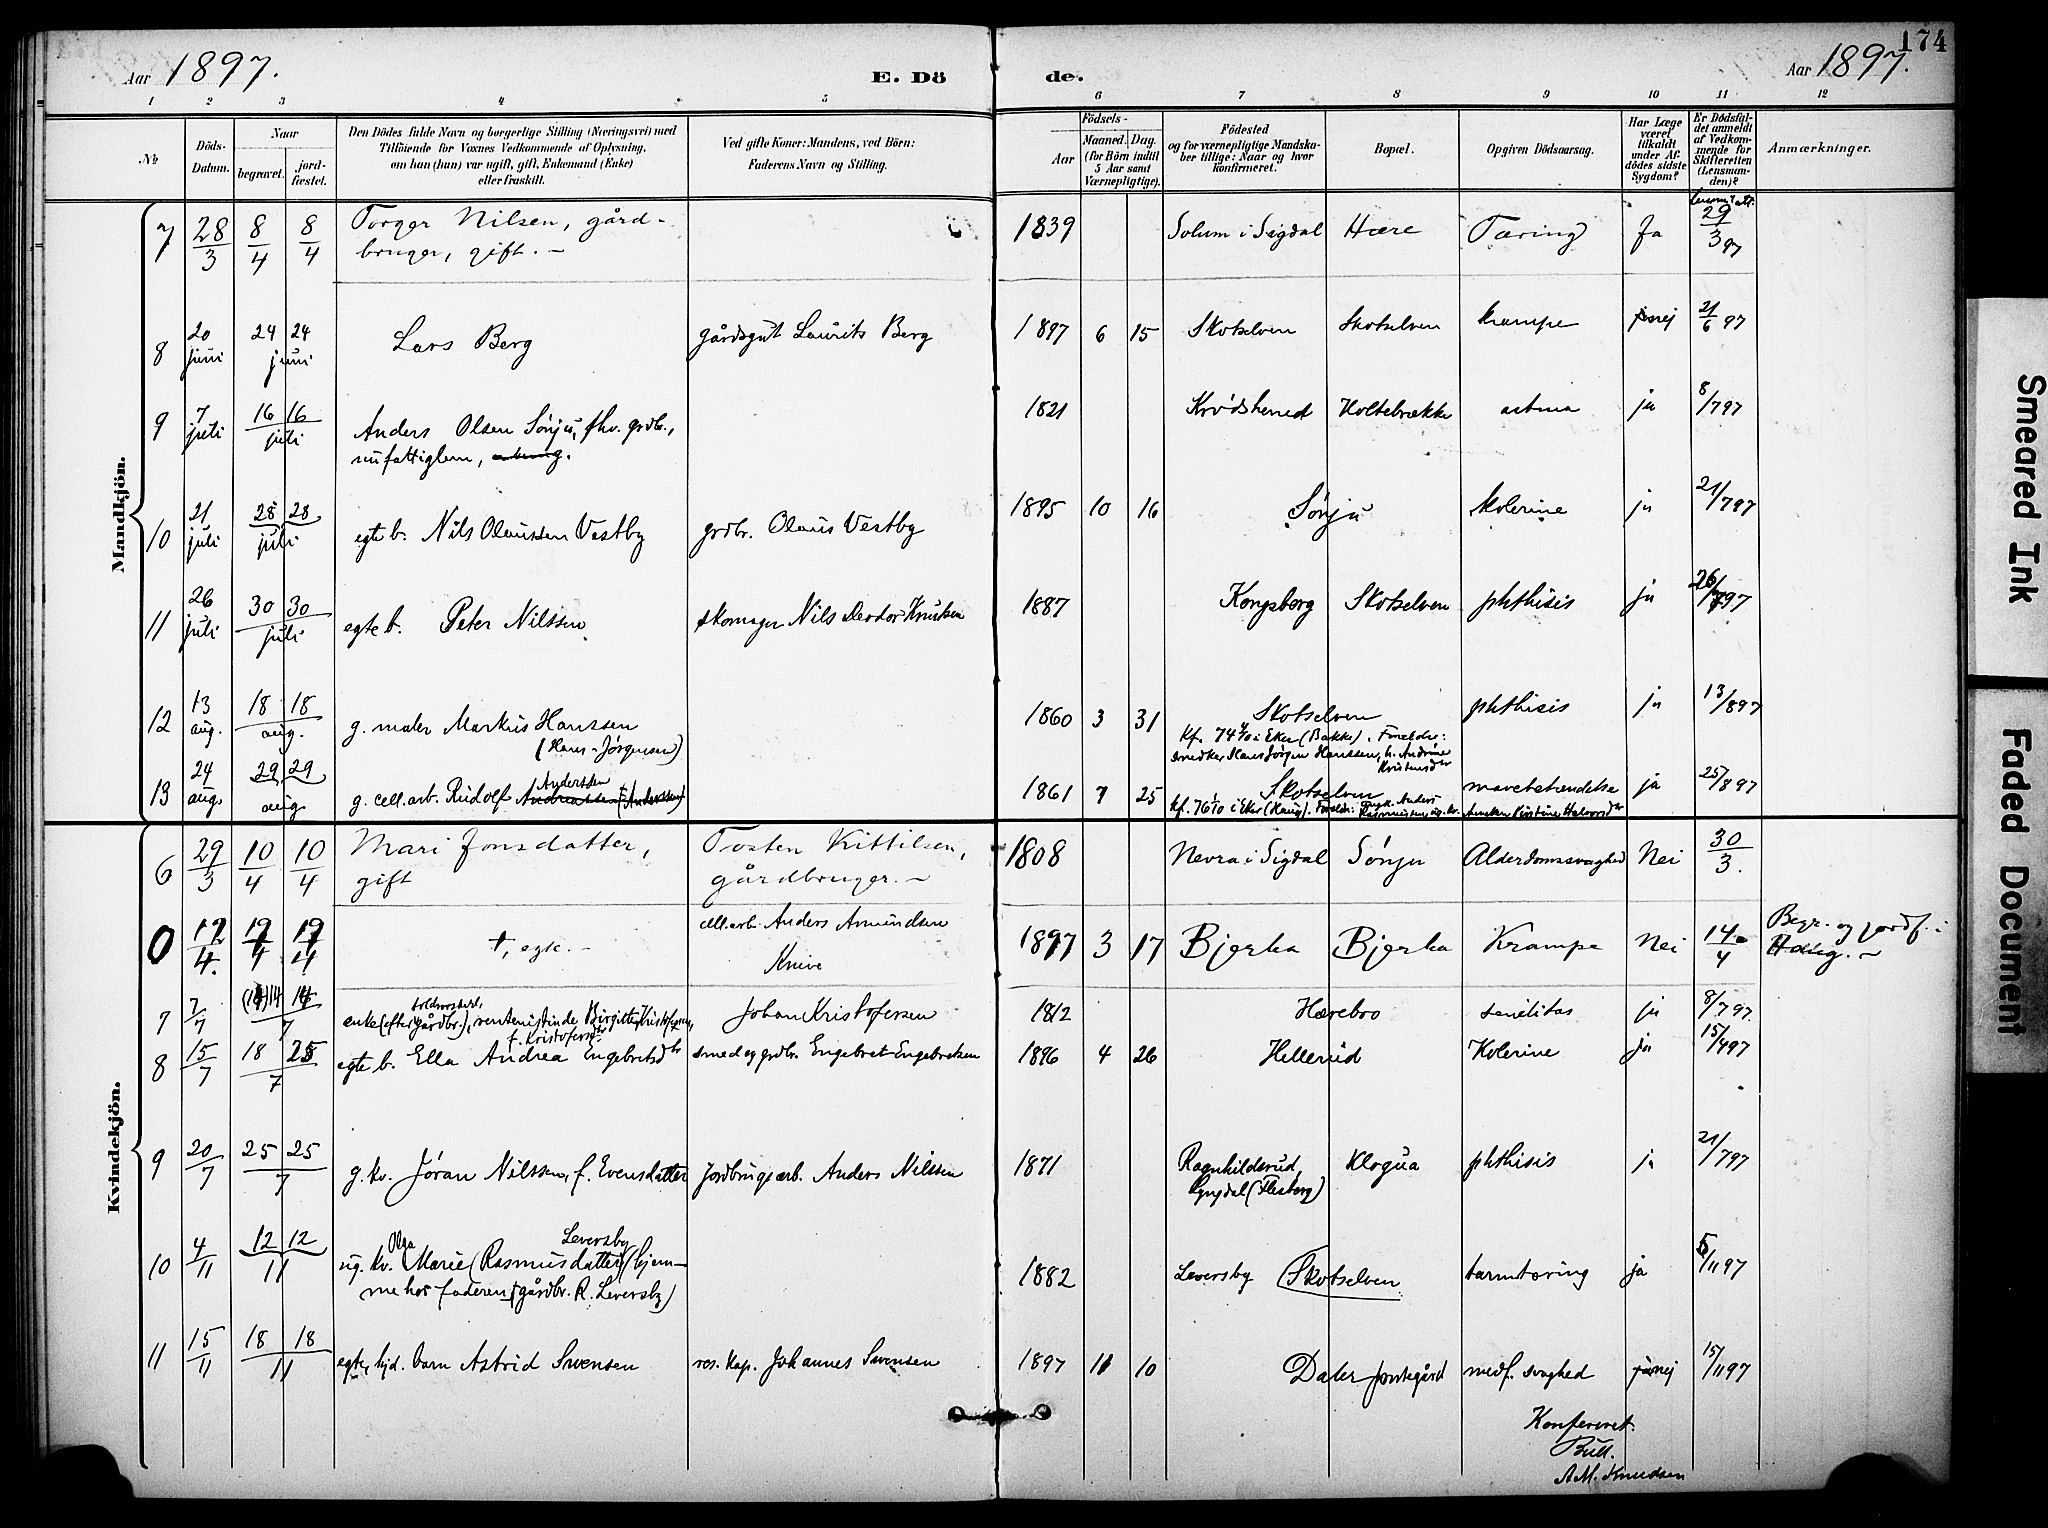 174
Aar 1897.
E. Dö
de.
Aar 1897.
1 2 3 4 5 6 7 8 9 10 11 12
No
Döds-Datum.
Naar
begravet.
jord-fæstet.
Den Dödes fulde Navn og borgerlige Stilling (Næringsvei) med
Tilföiende for Voxnes Vedkommende af Oplysning,
om han (hun) var ugift, gift, Enkemand (Enke)
eller fraskilt.
Ved gifte Koner: Mandens, ved Börn:
Faderens Navn og Stilling.
Födsels-
Aar
Maaned. Dag.
(for Börn indtil
5 Aar samt
Værnepligtige).
Födested
og for værnepligtige Mandska-
ber tillige: Naar og hvor
konfirmeret.
Bopæl.
Opgiven Dödsaarsag.
Har Læge
været
tilkaldt
under Af-
dödes sidste
Sygdom?
Er Dödsfal-
det anmeldt
af Vedkom-
mende for
Skifteretten
(Lensman-
den)?
Anmærkninger.
Mandkjön.
7 28/3 8/4 8/4 Torger Nilsen, gård- 1839 Solum i Sigdal Hære Tæring Ja 29/3 97
bruger, gift. –
8 20 juni 24 24 juni Lars Berg gårdsgut Laurits Berg 1897 6 15 Skotselven Skotselven krampe nej 21/6 97
9 7 juli 16 16 juli Anders Olsen Sønju, fhv. grdbr., 1821 Krødsherred Holtebrække astma ja 8/7 97
nu fattiglem,
10 21 juli 28 28 juli egte b. Nils Olaussen Vestby grdbr. Olaus Vestby 1895 10 16 Sønju kolerine ja 21/7 97
11 26 juli 30 30 juli egte b. Peter Nilssen skomager Nils Teodor Knutsen 1887 Kongsberg Skotselven phthisis ja 26/7 97
12 13 aug. 18 18 aug. g. maler Markus Hanssen 1860 3 31 Skotselven phthisis ja 13/8 97
(Hans-Jørgensen)
kf. 74 4/10 i Eker (Bakke). Foreldre:
snedker Hans Jørgen Hanssen, h. Andrine
Kristensdtr
13 24 aug. 29 29 aug. g. cell.arb. Rudolf Anderssen 1861 7 25 Skotselven mavebetændelse ja 25/8 97
kf. 76 1/10 i Eker (Haug). Foreldr: Anders
Rasmussen og Kirstine Halvorsdtr
Kvindekjön.
6 29/3 10/4 10/4 Mari Jonsdatter, Tosten Kittilsen, 1808 Nevra i Sigdal Sønju Alderdomssvaghed Nei 30/3.
gift gårdbruger. –
0 12/4. 19/4 19/4 †, egte. – cell.arb. Anders Amundsen 1897 3 17 Bjerka Bjerka Krampe Nei 14/4 Begr. og jordf. i
Knive Haug. –
7 7/7 14 14/7 enke (efter gårdbr.), rentenistinde Birgitte Kristofersen, Johan Kristofersen 1812 Hærebro senilitas ja 8/7 97.
f. Kristofersdtr
8 15/7 18 25/7 egte b. Ella Andrea Engebretsdtr smed og grdbr. Engebret Engebretsen 1896 4 26 Hellerud Kolerine ja 15/7 97
9 20/7 25 25/7 g. kv. Jöran Nilssen, f. Evensdatter jordbrugsarb. Anders Nilssen 1871 Ragnhildsrud, Klogua phthisis ja 21/7 97
Lyngdal (Flesberg)
10 4/11 12 12/11 ug. kv. Olga Marie (Rasmusdatter) Leversby (hjem- 1882 Leversby (Skotselven tarmtæring ja 5/11 97
me hos faderen gårdbr. R. Leversby)
11 15/11 18 18/11 egte, hjd. barn Astrid Svensen res. kap. Johannes Svensen 1897 11 10 Daler prestegård medf. svaghed nej 15/11 97
Konfereret.
Bull.
A.M. Knudsen
Smeared Ink
Faded Document